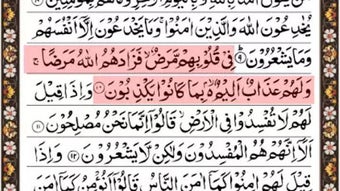 يُخٰدِعُوْنَ اللّٰهَ وَالَّذِيْنَ اٰمَنُوْا ۚ وَمَا يَخْدَعُوْنَ اِلَّآ اَنْفُسَهُمْ
وَمَا يَشْعُرُوْنَ ۝٩ فِيْ قُلُوْبِهِمْ مَّرَضٌ ۙ فَزَادَهُمُ اللّٰهُ مَرَضًا ۚ
وَلَهُمْ عَذَابٌ اَلِيْمٌ ۢ ۙ بِمَا كَانُوْا يَكْذِبُوْنَ ۝١٠ وَاِذَا قِيْلَ
لَهُمْ لَا تُفْسِدُوْا فِي الْاَرْضِ ۙ قَالُوْٓا اِنَّمَا نَحْنُ مُصْلِحُوْنَ ۝١١
اَلَآ اِنَّهُمْ هُمُ الْمُفْسِدُوْنَ وَلٰكِنْ لَّا يَشْعُرُوْنَ ۝١٢ وَاِذَا
قِيْلَ لَهُمْ اٰمِنُوْا كَمَآ اٰمَنَ النَّاسُ قَالُوْٓا اَنُؤْمِنُ كَمَآ اٰمَنَ